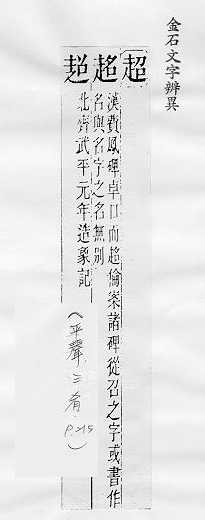 金石文字辨異
超
漢費鳳碑卓口而超倫案諸碑從召之字或書作
名與名字之名無別
北齊武平元年造象記
(平聲.三肴 p.215)